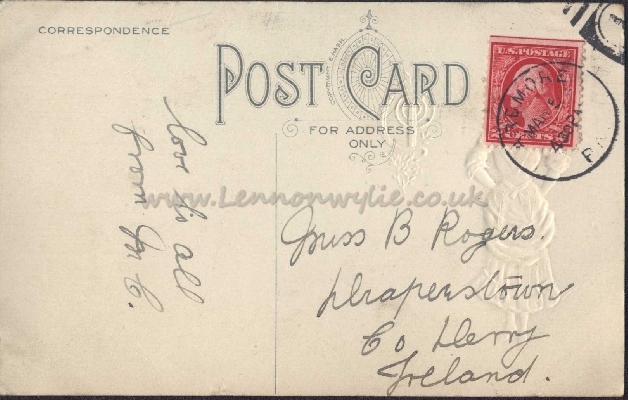 CORRESPONDENCE
POST CARD
FOR ADDRESS
ONLY
U.S. POSTAGE
CENTS
MAR
PA.
love to all
from M C.
www.Lennonwylie.co.uk
Miss B Rogers.
Draperstown
Co Derry
Ireland.